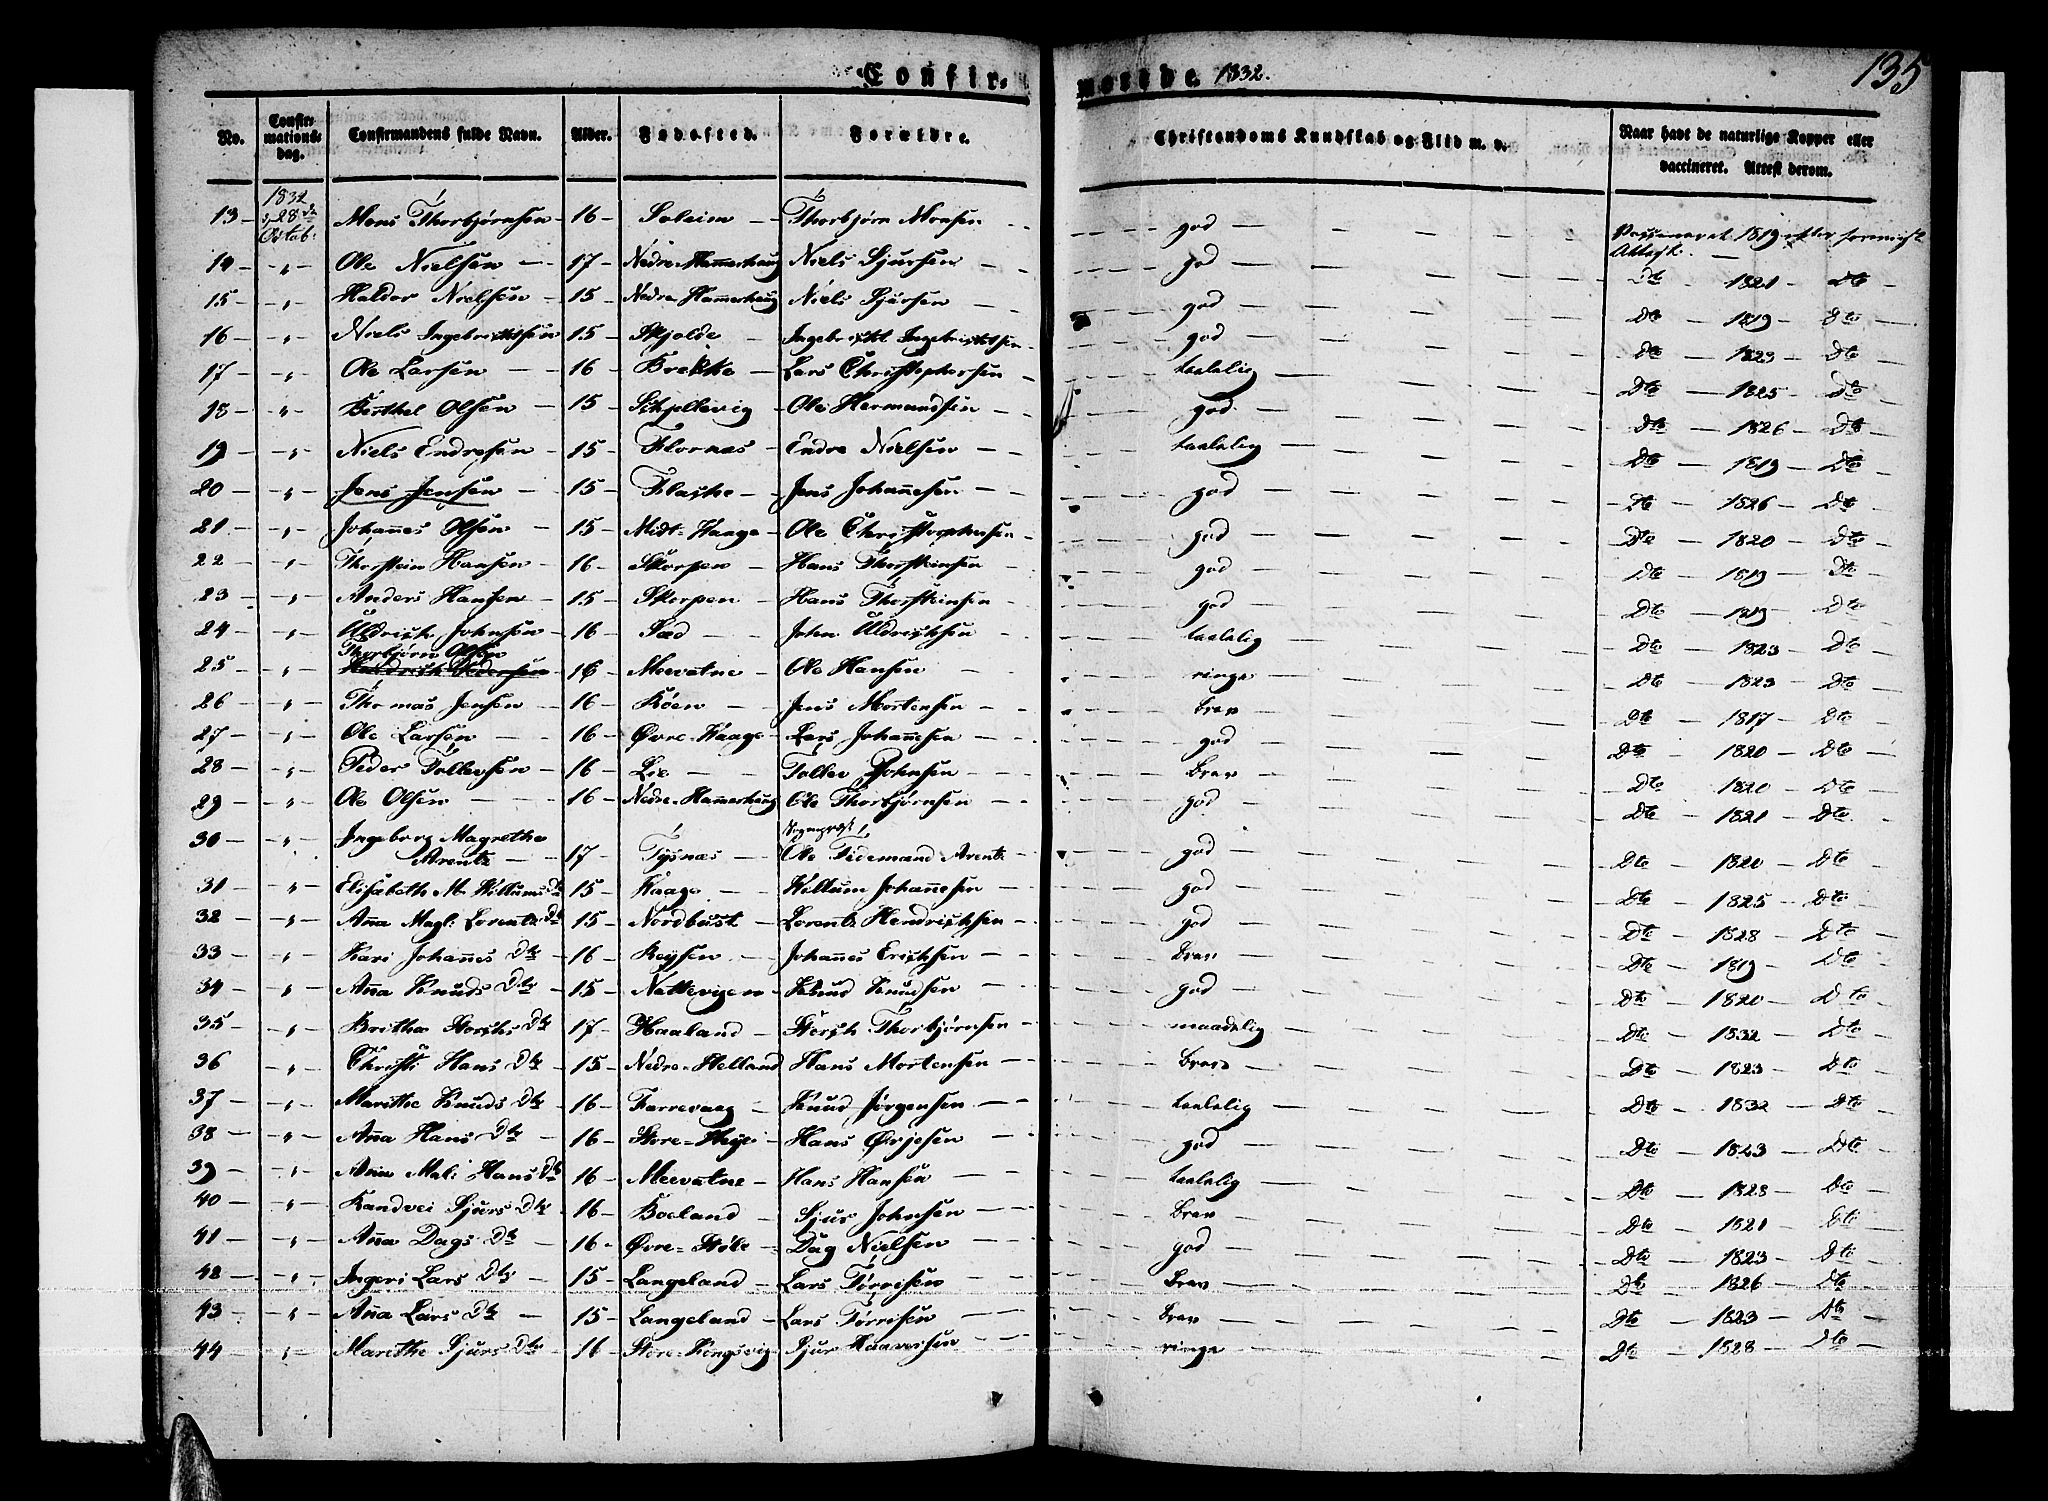 Confir-
merede. 1832.
135
No.
Confir-
mations-
dag.
Confirmandens fulde Navn.
Alder.
Fødested.
Forældre.
Christendoms Kundskab og Flid m. v.
Naar havt de naturlige Kopper eller
vaccineret. Attest derom.
1832
d. 28de
Octob:
13 — Mons Thorbjørnsen 16 — Soleim — Thorbjørn Monsen — god — Vaccineret 1819 efter foreviist
Attest. —
14 — " — Ole Nielsen — 17 — Nedre-Hammerhaug Niels Sjursen — god — Dto 1821 — Dto
15 — " — Haldor Nielsen — 15 — Nedre-Hammerhaug Niels Sjursen — god — Dto — 1819 — Dto
16 — " — Niels Ingebrictsen — 15 — Skjolde — Ingebrictt Ingebrictsen — god — Dto — 1823 — Dto
17 — " — Ole Larsen — 16 — Brekke — Lars Christophersen — taalelig — Dto — 1825 — Dto
18 — " — Berthel Olsen — 15 — Schjellevig — Ole Hermandsen — god — Dto — 1826 — Dto
19 — " — Niels Endresen — 15 — Flornæs — Endre Nielsen — taalelig — Dto — 1819 — Dto
20 — " — Jens Jensen — 15 — Flaske — Jens Johannesen — god — Dto — 1826 — Dto
21 — " — Johannes Olsen — 15 — Midt-Haage — Ole Christophersen — god — Dto — 1820 — Dto
22 — " — Thorstein Hansen — 16 — Skorpen — Hans Thorsteinsen — god — Dto — 1819 — Dto
23 — " — Anders Hansen — 15 — Skorpen — Hans Thorsteinsen — god — Dto — 1819 — Dto
24 — " — Uldrich Johnsen — 16 — Sæd — John Uldrichsen — taalelig — Dto — 1823 — Dto
Thorbjørn Olsen
25 — " — 16 — Meevatne — Ole Hansen — ringe — Dto — 1823 — Dto
26 — " — Thomas Jensen — 16 — Röen — Jens Mortensen — brav — Dto — 1817 — Dto
27 — " — Ole Larsen — 16 — Øvre-Haage — Lars Johannesen — god — Dto — 1820 — Dto
28 — " — Peder Tollevsen — 16 — Lie — Tollev Johnsen — brav — Dto — 1820 — Dto
29 — " — Ole Olsen — 16 — Nedre-Hammerhaug Ole Thorbjørnsen — god — Dto — 1821 — Dto
30 — " — Ingeborg Magrethe
Arentz — 17 — Tysnæs — Sognepræst Ole Tidemand Arentz — god — Dto — 1820 — Dto
31 — " — Elisabeth M. Willums Dtr 15 — Haage — Willum Johannesen — god — Dto — 1825 — Dto
32 — " — Anna Magl: Lorentz Dtr 15 — Nordbust — Lorentz Hendrichsen — god — Dto — 1828 — Dto
33 — " — Kari Johannes Dtr — 16 — Reysen — Johannes Erichsen — brav — Dto — 1819 — Dto
34 — " — Anna Knuds Dtr — 15 — Nattevigen — Knud Knudsen — god — Dto — 1820 — Dto
35 — " — Britha Storchs Dtr — 17 — Haaland — Storch Thorbjørnsen — maadelig — Dto — 1832 — Dto
36 — " — Christi Hans Dtr — 15 — Nedre-Helland Hans Mortensen — brav — Dto — 1823 — Dto
37 — " — Marithe Knuds Dtr — 16 — Farrevaag — Knud Jørgensen — taalelig — Dto — 1832 — Dto
38 — " — Anna Hans Dtr — 16 — Store- — Hans Ørjesen — god — Dto — 1823 — Dto
39 — " — Anna Mali Hans Dtr 16 — Meevatne — Hans Hansen — taalelig — Dto — 1823 — Dto
40 — " — Randvei Sjurs Dtr — 16 — Boeland — Sjur Johnsen — brav — Dto — 1821 — Dto
41 — " — Anna Dags Dtr — 16 — Øvre-Støle — Dag Nielsen — god — Dto — 1823 — Dto
42 — " — Ingeri Lars Dtr — 15 — Langeland — Lars Tørrisen — brav — Dto — 1826 — Dto
43 — " — Anna Lars Dtr — 15 — Langeland — Lars Tørrisen — brav — Dto — 1823 — Dto
44 — " — Marithe Sjurs Dtr — 16 — Store-Kongsvig Sjur Haavorsen — ringe — Dto — 1828 — Dto